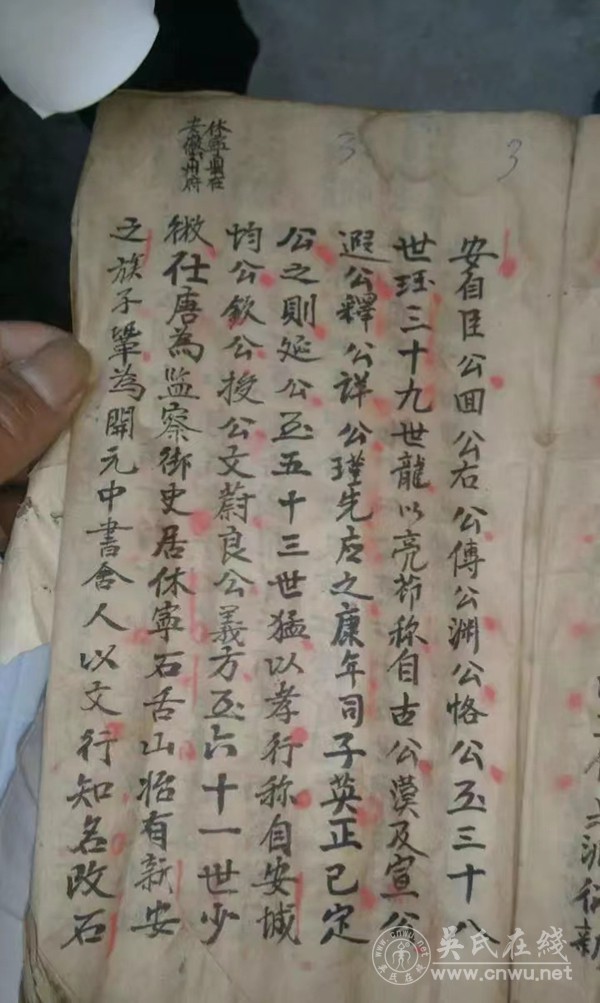 休寧縣在
安徽州府
3
3
安自臣公回公右公傳公渊公恪公至三十八
世珏三十九世龍以亮節称自古公漠及宣公
遐公釋公詳公瑾先应之康年司子英正已定
公之則延公至五十三世猛以孝行称自安城
均公欽公授公文蔚良公義方至六十一世少
微仕唐為監察御史居休寧石舌山始有新安
之族子鞏為開元中書舍人以文行知名改石
吳氏在綫
www.cnwu.net